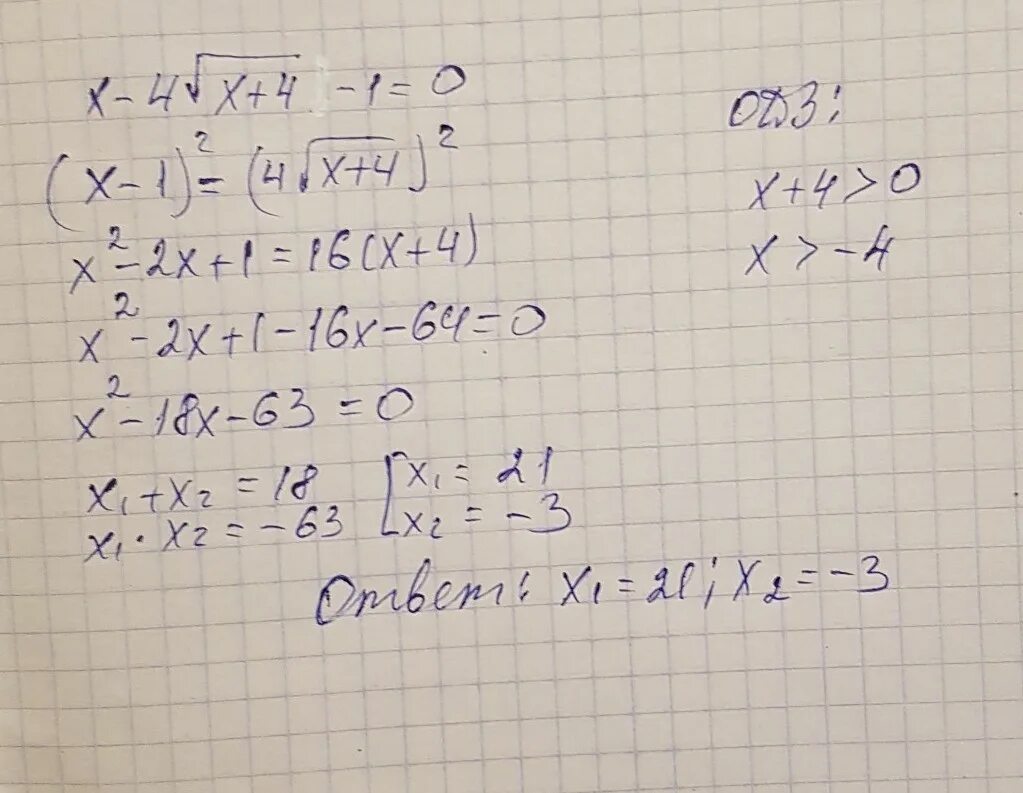 x - 4√(x+4) - 1 = 0
(x - 1)² = (4√(x+4))²
x² - 2x + 1 = 16(x+4)
x² - 2x + 1 - 16x - 64 = 0
x² - 18x - 63 = 0
x₁ + x₂ = 18
x₁ · x₂ = -63
[x₁ = 21
x₂ = -3
Ответ: x₁ = 21; x₂ = -3
ОДЗ:
x + 4 > 0
x > -4